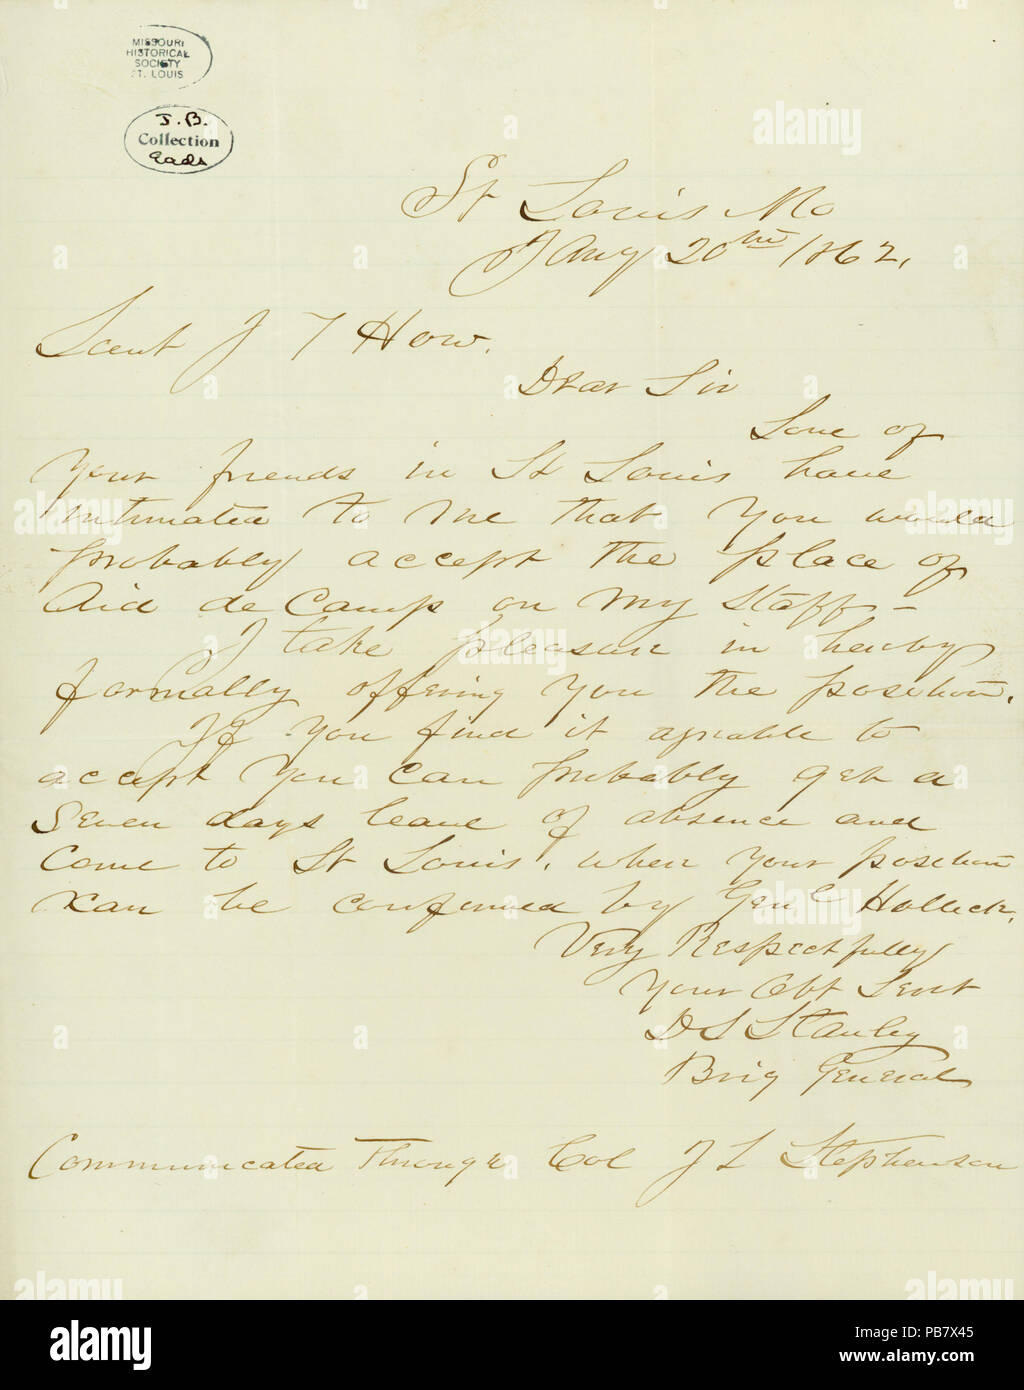 MISSOURI
HISTORICAL
SOCIETY
ST. LOUIS
J. B.
Collection
Eads
St Louis Mo
Jany 20th 1862.
Lieut J T How.
Dear Sir
Some of
your friends in St Louis have
intimated to me that you would
probably accept the place of
Aid de Camp on my staff –
I take pleasure in hereby
formally offering you the position.
If you find it agreable to
accept you can probably get a
seven days leave of absence and
come to St Louis, when your position
can be confirmed by Genl Halleck.
Very Respectfully
Your Obt Servt
D S Stanley
Brig General
Communicated Through Col J L Stephenson
alamy
Image ID: PB7X45
www.alamy.com